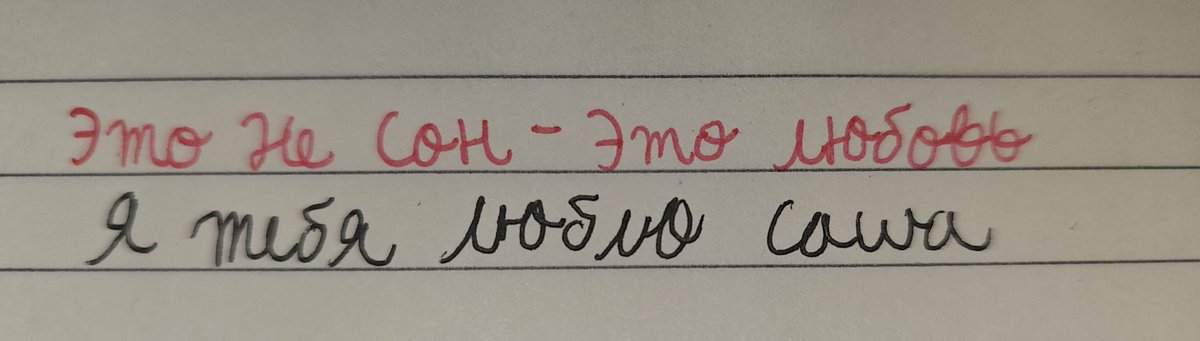 Это не сон - это любовь
Я тебя люблю саша